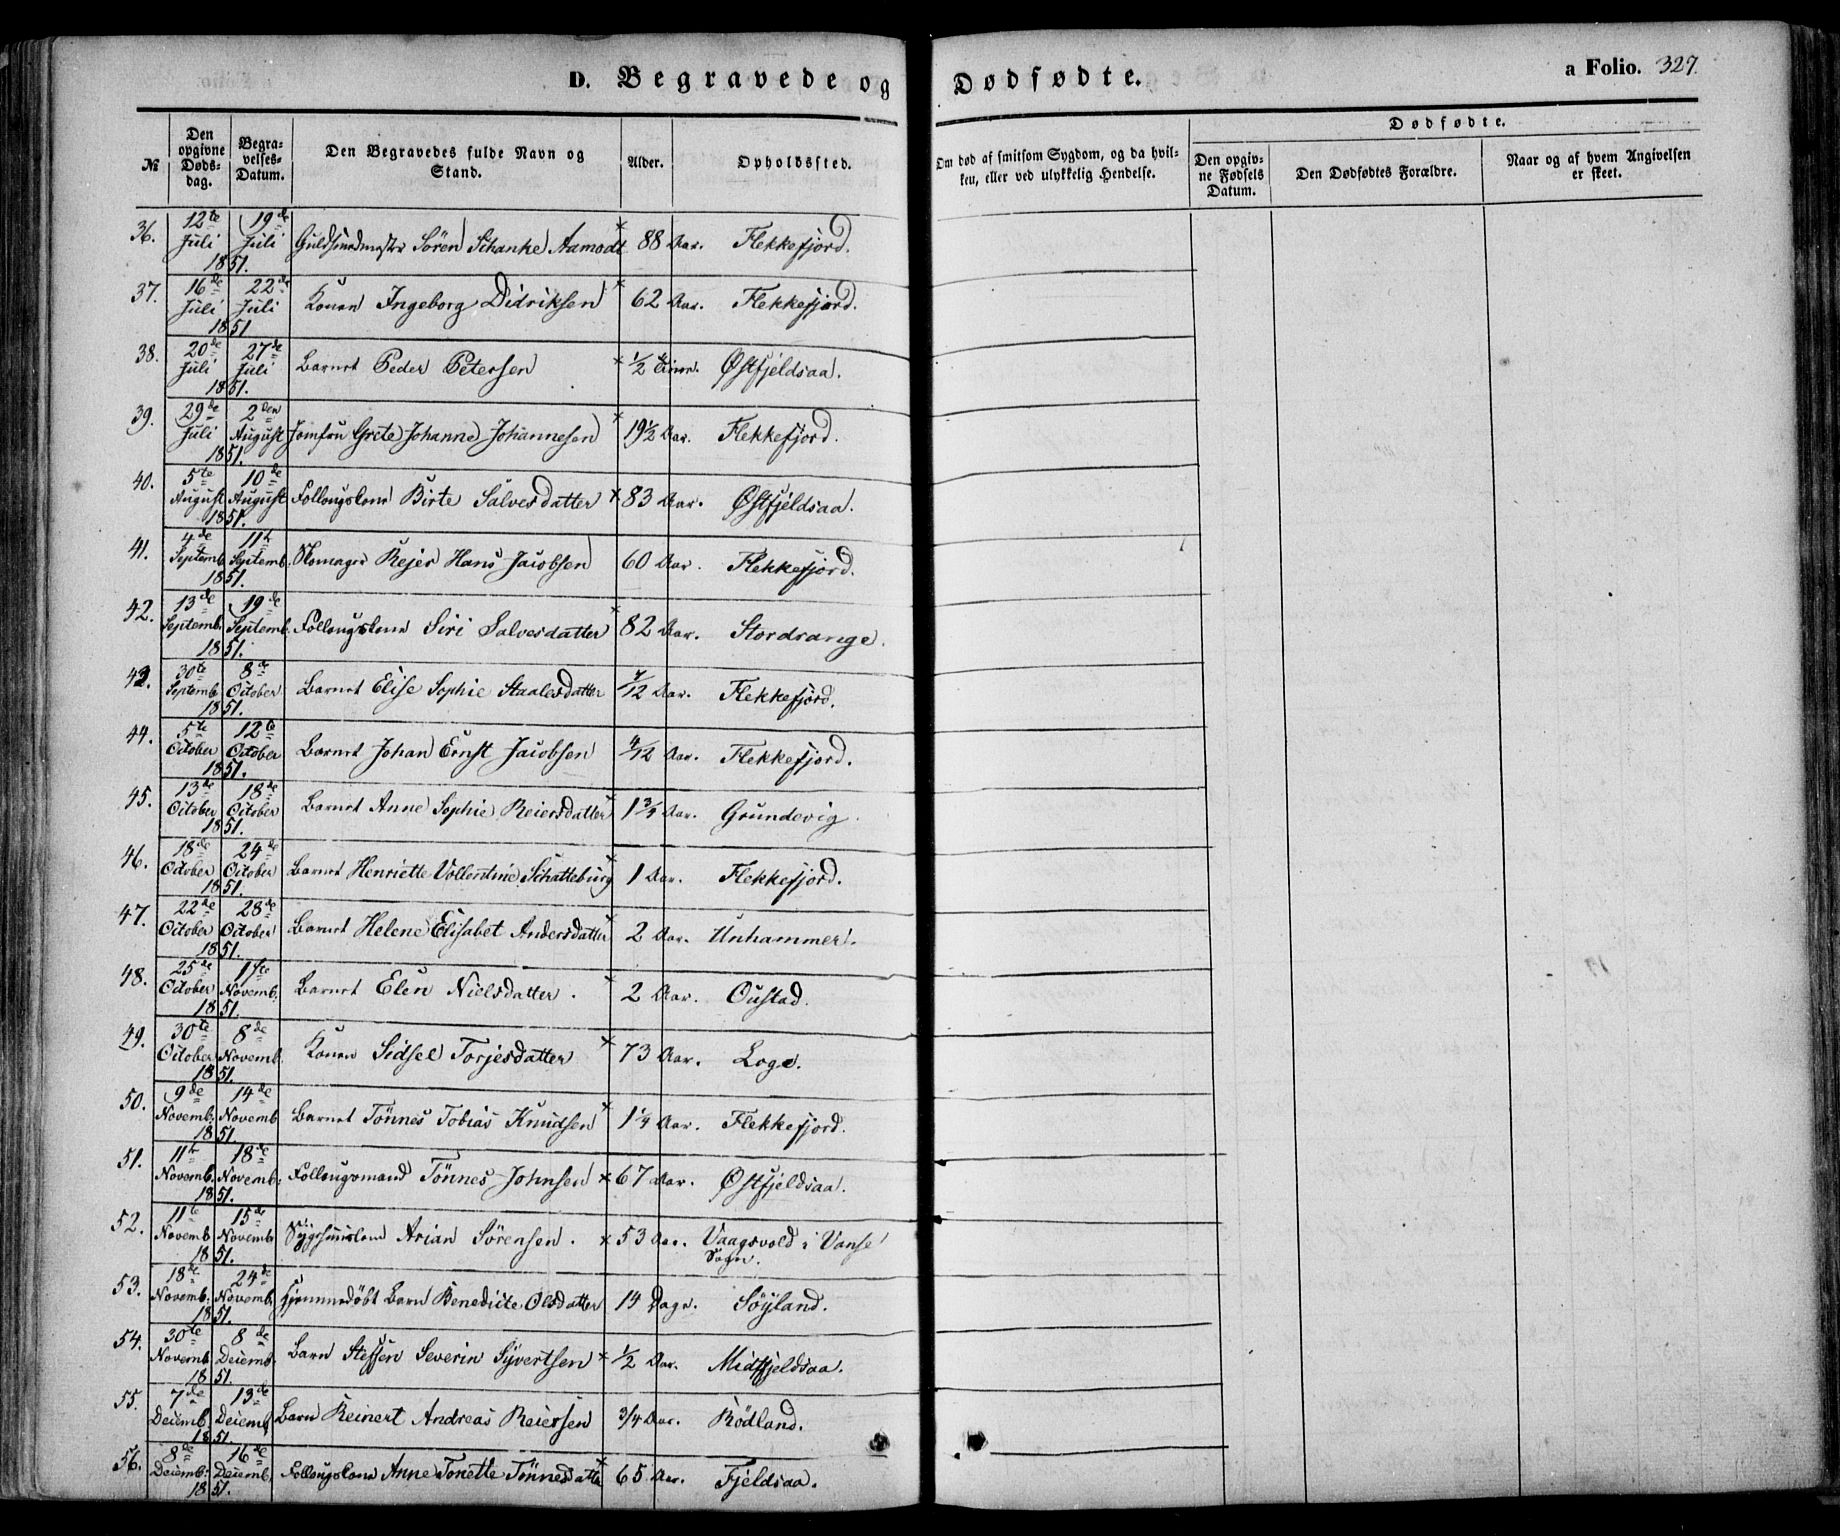 D. Begravede og Dødfødte.
a Folio. 327.
№
Den opgivne Døds-dag.
Begra-velses-Datum.
Den Begravedes fulde Navn og Stand.
Alder.
Opholdssted.
Om død af smitsom Sygdom, og da hvil-ken, eller ved ulykkelig Hendelse.
Dødfødte.
Den opgiv-ne Fødsels Datum.
Den Dødfødtes Forældre.
Naar og af hvem Angivelsen er skeet.
36. 12te Juli 19de Juli 1851. Guldsmedmester Sören Schanke Aamodt 88 Aar. Flekkefjord.
37. 16de Juli 22de Juli 1851 Konen Ingeborg Didriksen 62 Aar. Flekkefjord.
38. 20de Juli 27de Juli 1851. Barnet Peder Petersen ½ Østfjeldsaa.
39. 29de Juli 2den August 1851. Jomfru Grete Johanne Johannesen 19½ Aar. Flekkefjord.
40. 5te August 10de August 1851. Follougskone Birte Salvesdatter 83 Aar. Østfjeldsaa.
41. 4de Septemb. 11te Septemb. 1851. Skomager Rejer Hans Jacobsen 60 Aar. Flekkefjord.
42. 13de Septemb. 19de Septemb. 1851. Follougskone Siri Salvesdatter 82 Aar. Stordrange.
43. 30te Septemb. 8de October 1851. Barnet Elise Sophie Staalesdatter 7/12 Aar. Flekkefjord.
44. 5te October 12te October 1851. Barnet Johan Ernst Jacobsen 4/12 Aar. Flekkefjord.
45. 13de October 18de October 1851. Barnet Anne Sophie Reiersdatter 1¾ Aar. Grundevig.
46. 18de October 24de October 1851. Barnet Henriette Vollentine Schatteburg 1 Aar. Flekkefjord.
47. 22de October 28de October 1851. Barnet Helene Elisabet Andersdatter 2 Aar. Unhammer.
48. 25de October 1ste Novemb. 1851. Barnet Elen Nielsdatter. 2 Aar. Oustad.
49. 30te October 8de Novemb. 1851. Konen Sidsel Torjesdatter 73 Aar. Loge.
50. 9de Novemb. 14de Novemb. 1851. Barnet Tönnes Tobias Knudsen 1¼ Aar. Flekkefjord.
51. 11te Novemb. 18de Novemb. 1851. Follougsmand Tönnes Johnsen 67 Aar. Østfjeldsaa.
52. 11te Novemb 15de Novemb 1851. Arian Sörensen. 53 Aar. Vaagsvold i Vanse Sogn.
53. 18de Novemb. 24de Novemb. 1851. Hjemmedöbt Barn Benedicte Olsdatter 14 Dage. Söyland.
54. 30te Novemb. 8de Decemb. 1851. Barn Steffen Severin Syvertsen ½ Aar. Midtfjeldsaa.
55. 7de Decemb. 13de Decemb. 1851. Barn Reinert Andreas Reiersen 3/4 Aar. Rödland.
56. 8de Decemb. 16de Decemb. 1851. Follougskone Anne Tonette Tönnesdatter 65 Aar. Fjeldsaa.